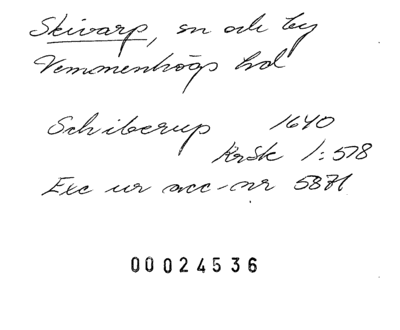 Skivarp, sn och by
Vemmenhögs hd
Schiberup 1640
KrSk 1:578
Exc ur acc-nr 5871
00024536